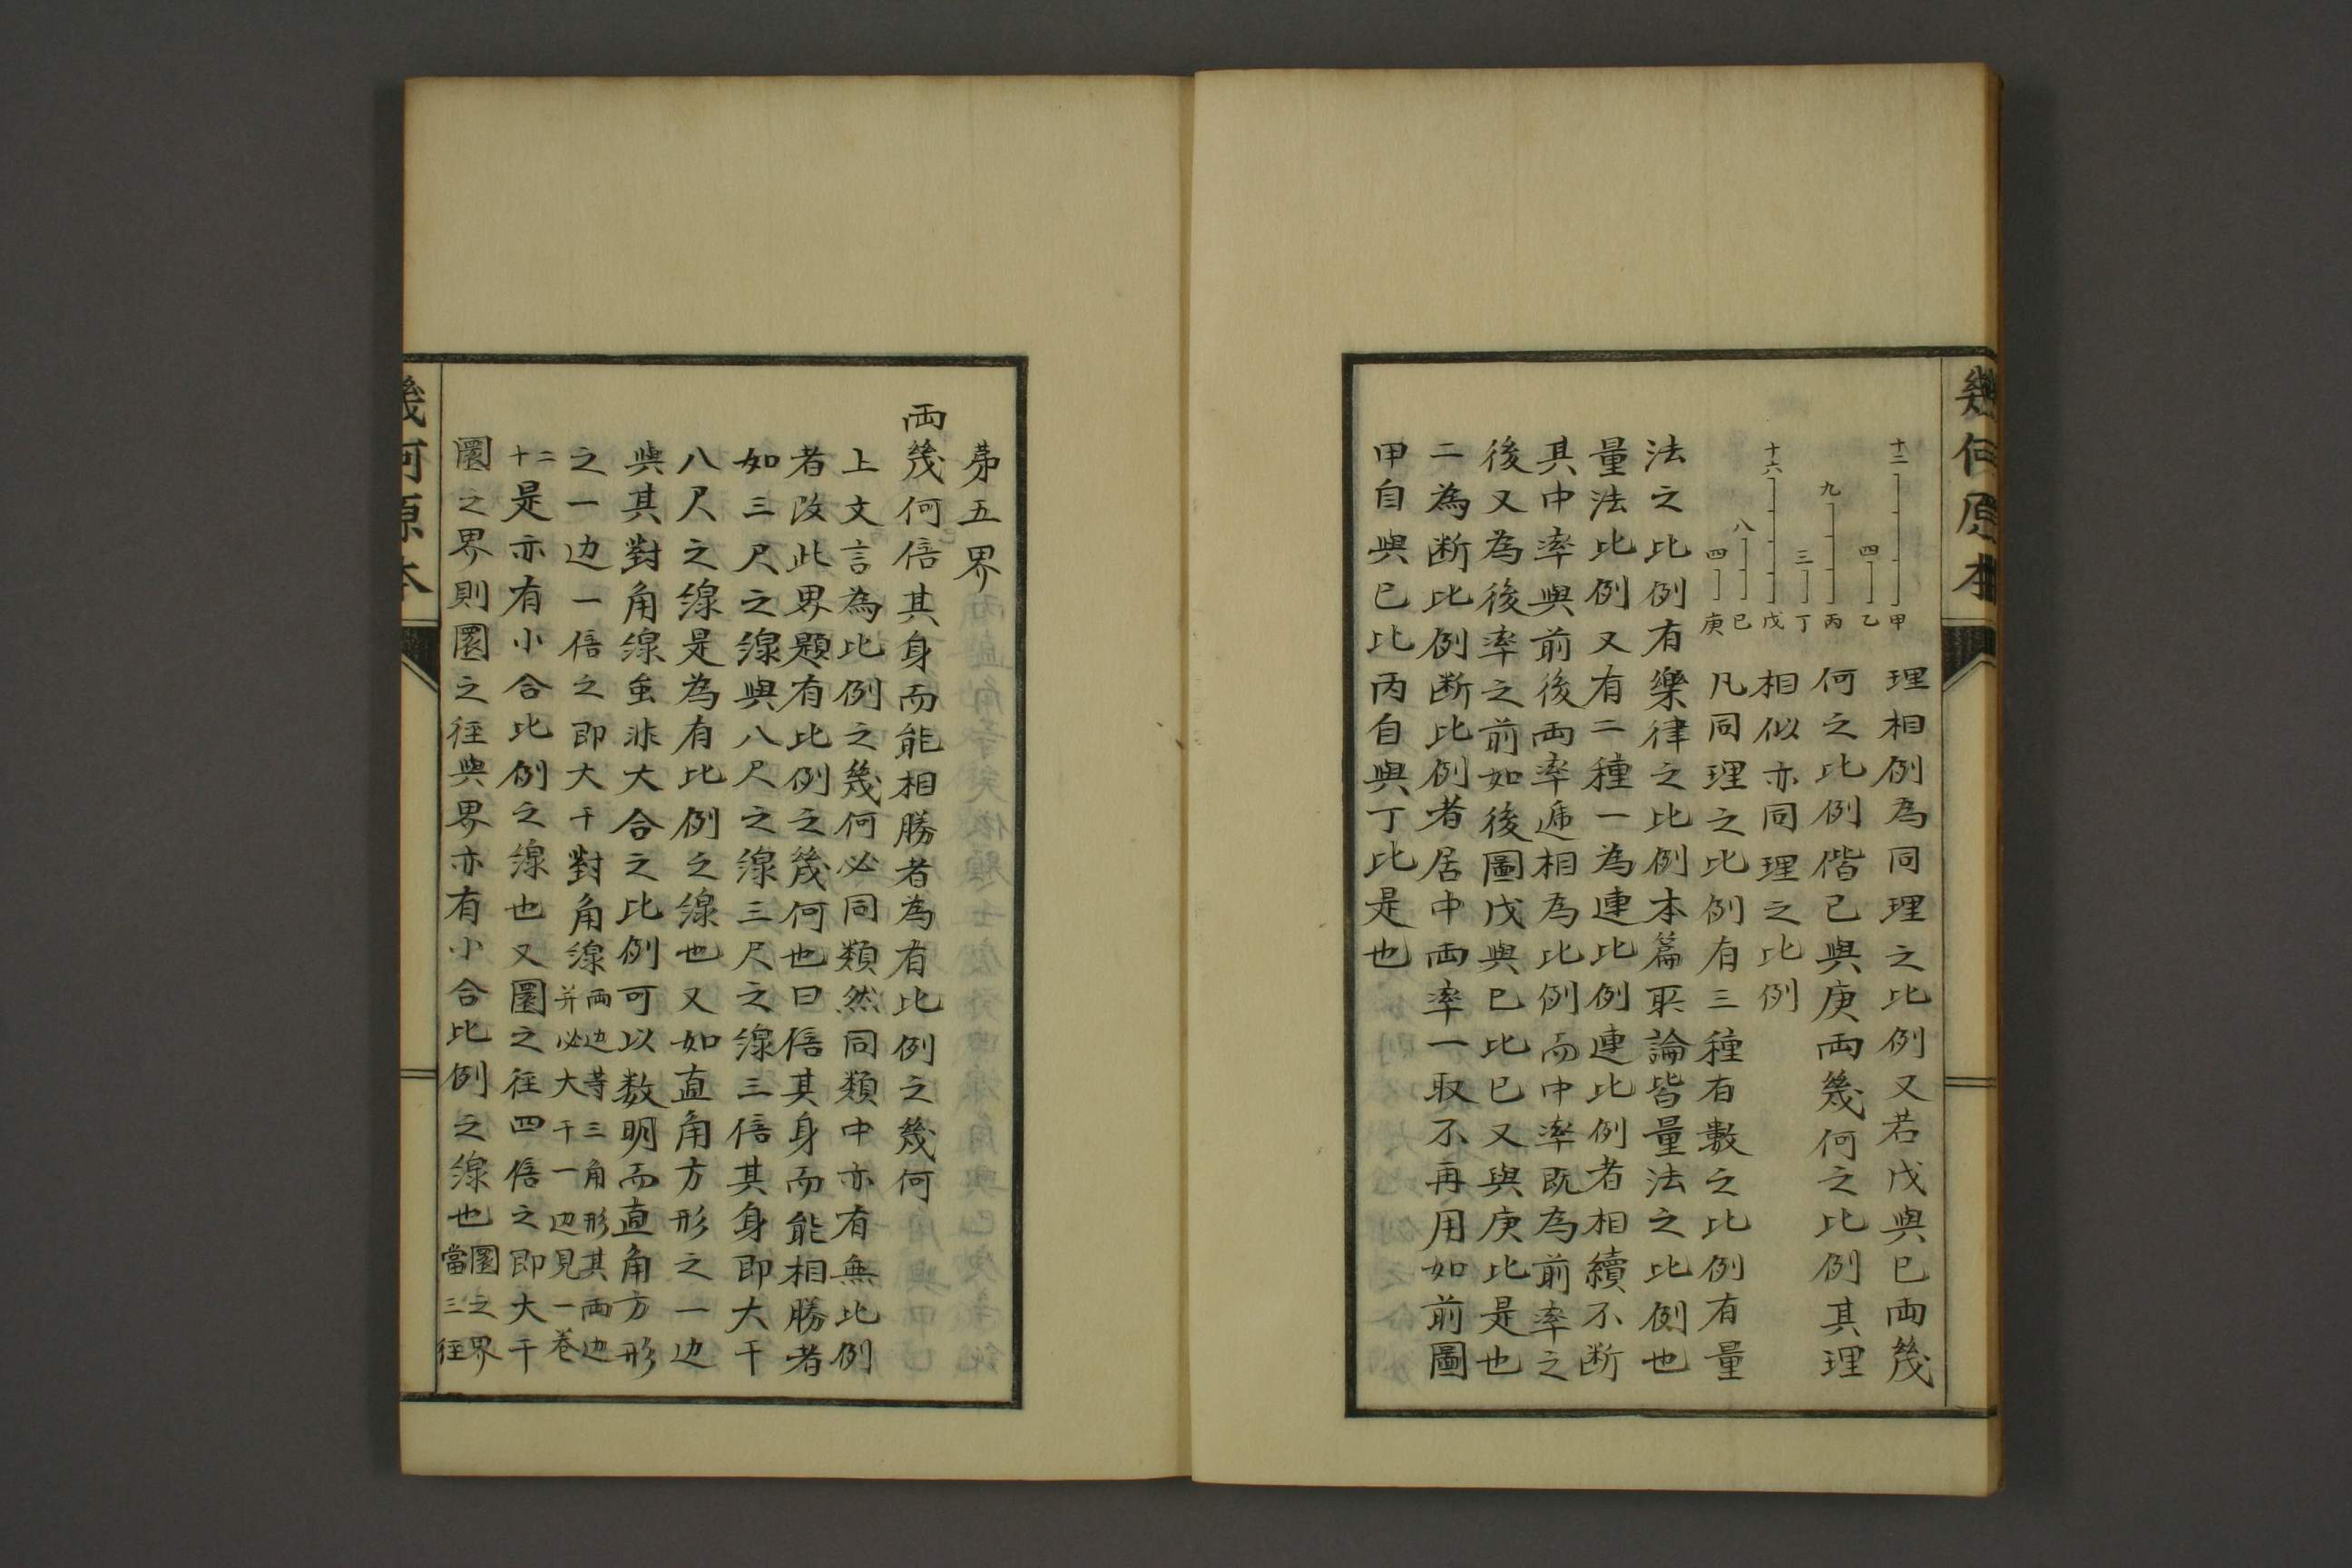 幾何原本
十二 甲
四 乙
九 丙
三 丁
十六 戊
八 己
四 庚
理相例為同理之比例又若戊與已両幾
何之比例偕已與庚両幾何之比例其理
相似亦同理之比例
凡同理之比例有三種有數之比例有量
法之比例有樂律之比例本篇所論皆量法之比例也
量法比例又有二種一為連比例連比例者相續不断
其中率與前後両率遞相為比例而中率既為前率之
後又為後率之前如後圖戊與已比已又與庚比是也
二為断比例断比例者居中両率一取不再用如前圖
甲自與已比丙自與丁比是也
第五界
両幾何倍其身而能相勝者為有比例之幾何
上文言為比例之幾何必同類然同類中亦有無比例
者改此界題有比例之幾何也曰倍其身而能相勝者
如三尺之線與八尺之線三尺之線三倍其身即大于
八尺之線是為有比例之線也又如直角方形之一边
與其對角線虽非大合之比例可以数明而直角方形
之一边一倍之即大于對角線両边等三角形其両边
并必大于一边見一巻
二十是亦有小合比例之線也又圜之徑四倍之即大于
圜之界則圜之徑與界亦有小合比例之線也圜之界
當三徑
幾何原本